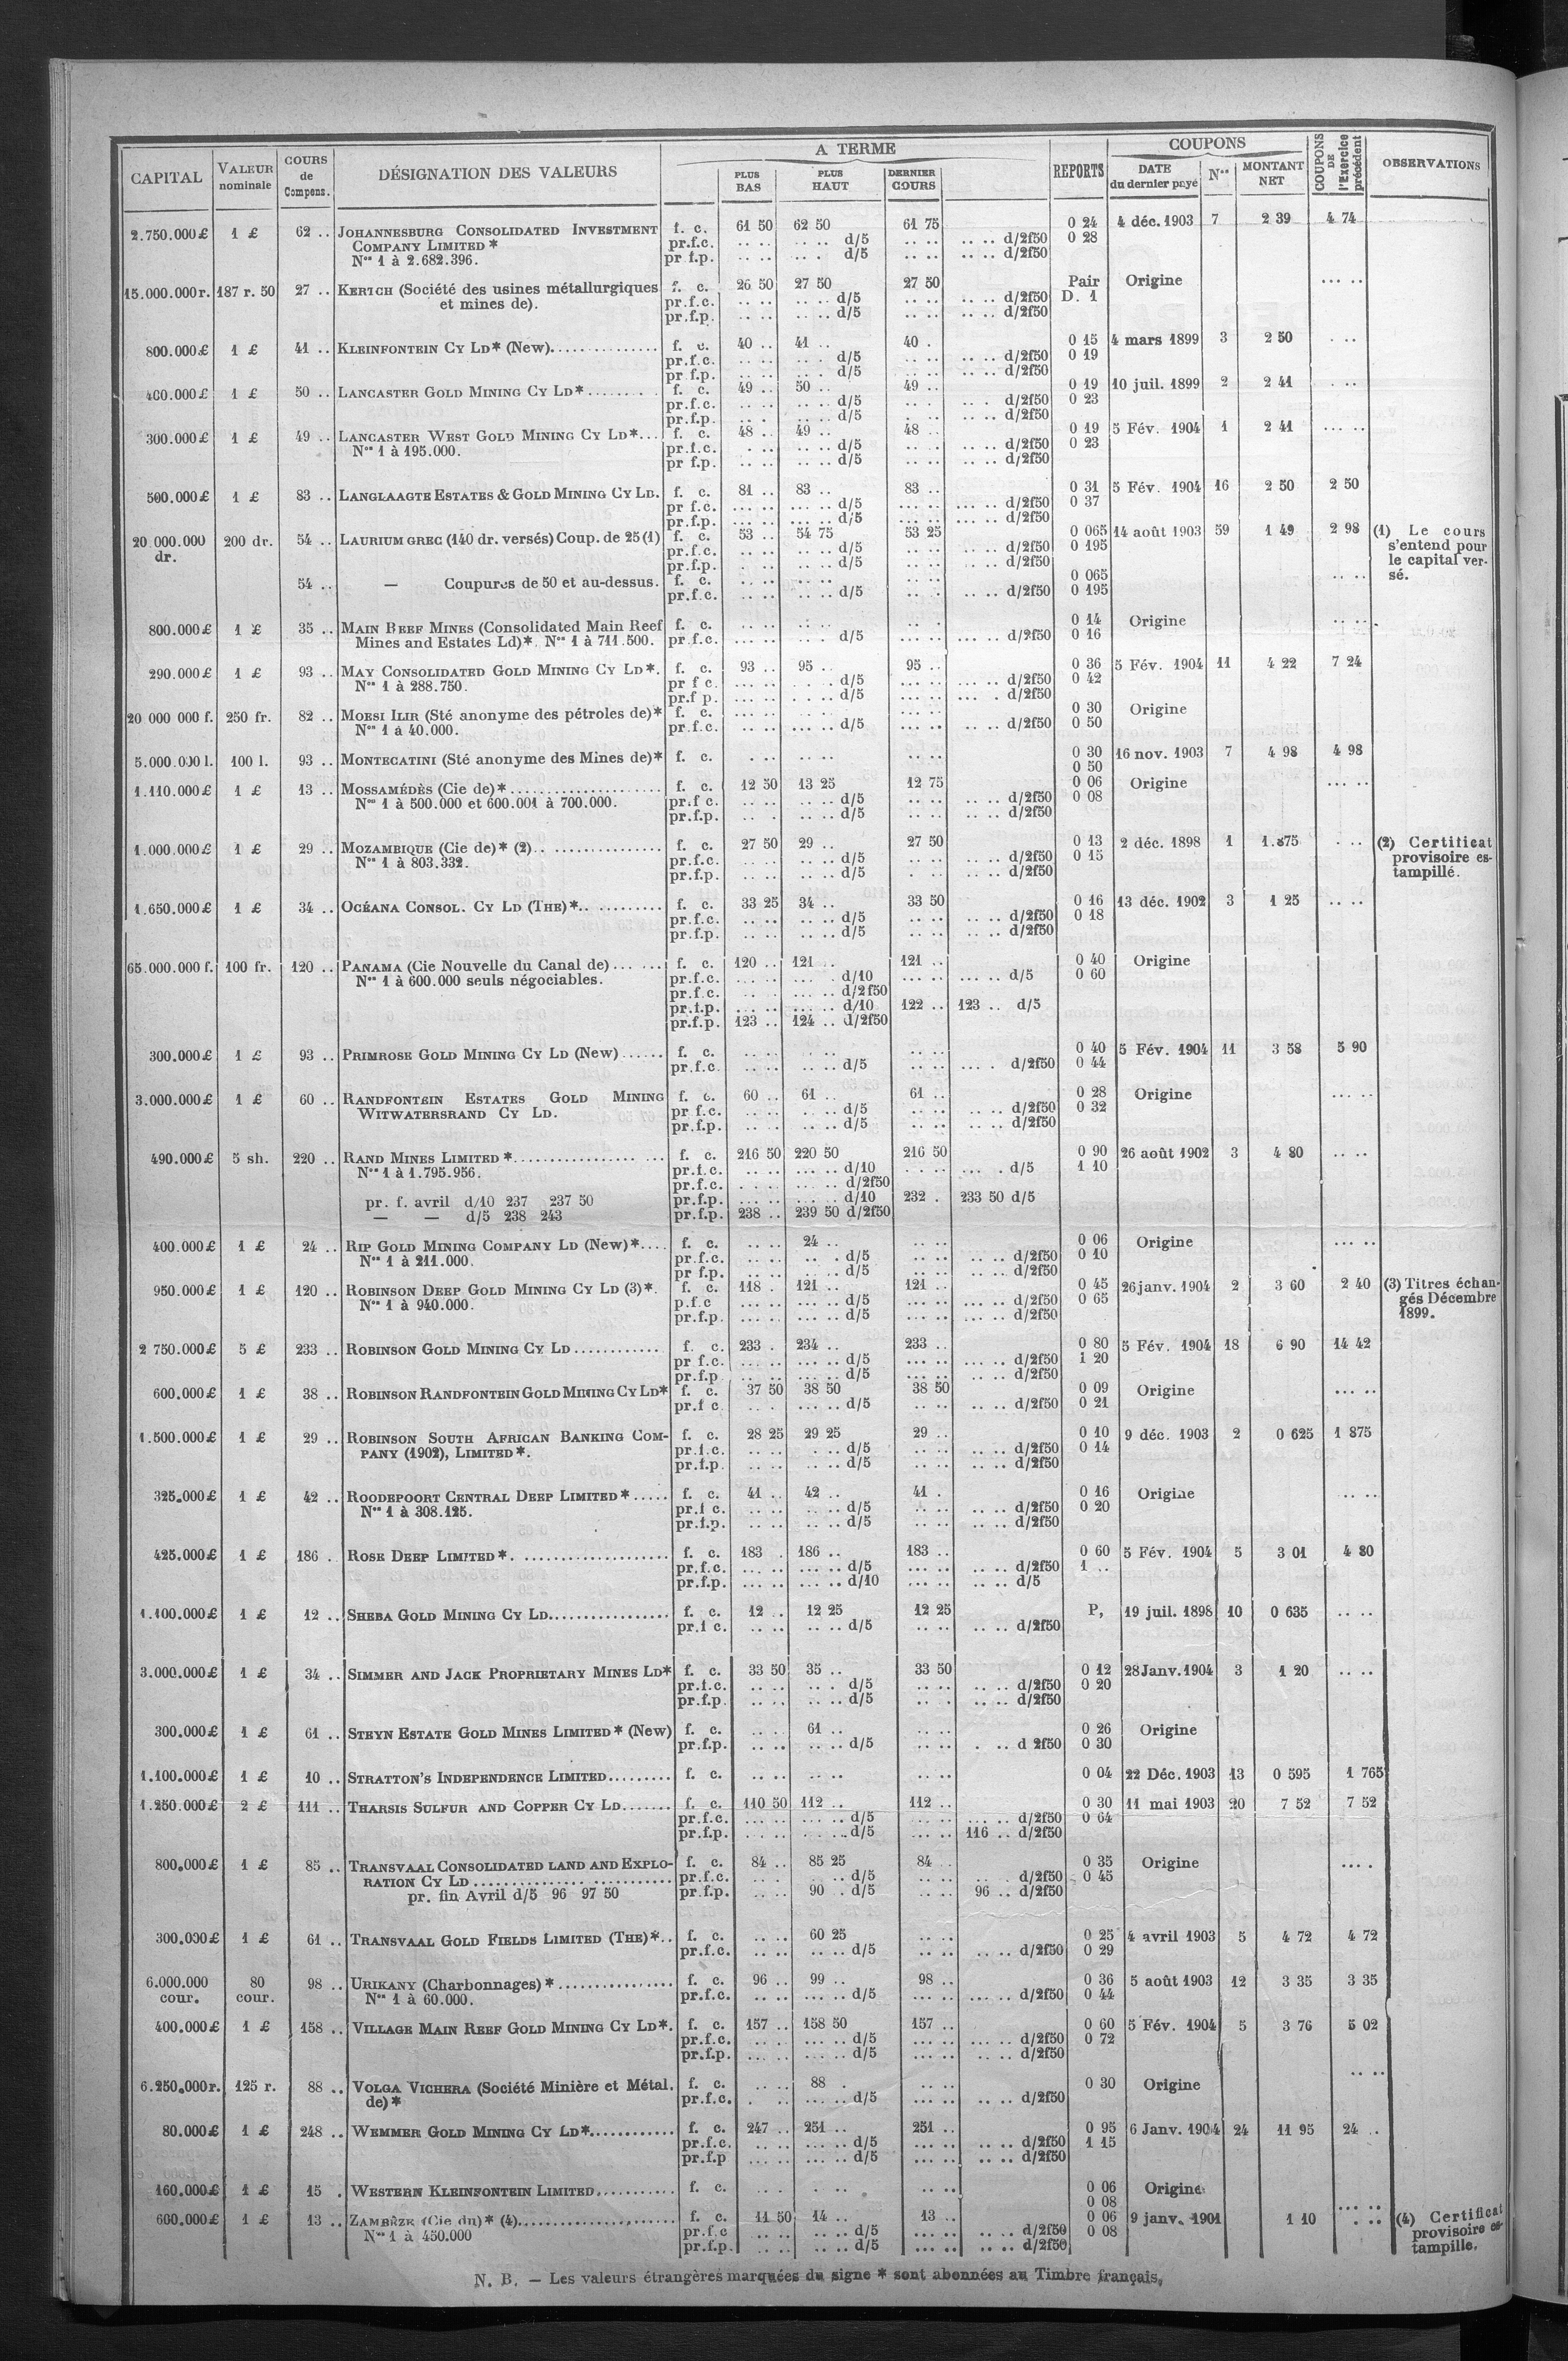 CAPITAL | VALEUR nominale | COURS de Compens. | DÉSIGNATION DES VALEURS | A TERME | PLUS BAS | PLUS HAUT | DERNIER COURS | REPORTS | COUPONS | DATE du dernier payé | Nos | MONTANT NET | COUPONS DE l'Exercice précédent | OBSERVATIONS
2.750.000£ 1 £ 62 .. JOHANNESBURG CONSOLIDATED INVESTMENT f. c. 61 50 62 50 61 75 0 24 4 déc. 1903 7 2 39 4 74
COMPANY LIMITED * pr.f.c. .. .. .. .. d/5 .. .. .. .. d/2f50 0 28
Nos 1 à 2.682.396. pr f.p. .. .. .. . d/5 .. .. .. .. d/2f50
15.000.000r. 187 r. 50 27 .. KERTCH (Société des usines métallurgiques f. c. 26 50 27 50 27 50 Pair Origine ... ..
et mines de). pr.f.c. .. .. .. .. d/5 .. .. .. .. d/2f50 D. 1
pr.f.p. .. .. .. .. d/5 .. .. .. .. d/2f50
800.000£ 1 £ 41 .. KLEINFONTEIN CY LD* (New)............... f. c. 40 .. 41 .. 40 . 0 15 4 mars 1899 3 2 50 . ..
pr.f.c. .. .. .. . d/5 .. .. .. .. d/2f50 0 19
pr f.p. .. .. .. . d/5 .. .. .. .. d/2f50
400.000£ 1 £ 50 .. LANCASTER GOLD MINING CY LD*........ . f. c. 49 .. 50 .. 49 .. 0 19 10 juil. 1899 2 2 41 . ..
pr.f.c. .. .. .. .. d/5 .. . .. . d/2f50 0 23
pr.f.p. .. .. .. .. d/5 . .. .. .. d/2f50
300.000£ 1 £ 49 .. LANCASTER WEST GOLD MINING CY LD*... f. c. 48 .. 49 .. 48 .. 0 19 5 Fév. 1904 1 2 41 ... ..
Nos 1 à 195.000. pr.f.c. . .. .. .. d/5 .. .. .. .. d/2f50 0 23
pr f.p. .. .. .. .. d/5 .. .. .. .. d/2f50
500.000£ 1 £ 83 .. LANGLAAGTE ESTATES & GOLD MINING CY LD. f. c. 81 .. 83 .. 83 .. 0 31 5 Fév. 1904 16 2 50 2 50
pr f.c. ... .. ... .. d/5 ... .. ... .. d/2f50 0 37
pr.f.p. ... .. ... .. d/5 ... .. ... .. d/2f50
20.000.000 200 dr. 54 .. LAURIUM GREC (140 dr. versés) Coup. de 25 (1) f. c. 53 .. 54 75 53 25 0 065 14 août 1903 59 1 49 2 98 (1) Le cours
dr. pr.f.c. .. .. .. .. d/5 .. .. .. .. d/2f50 0 195 s'entend pour
pr.f.p. .. .. .. .. d/5 .. .. .. .. d/2f50 le capital ver-
54 .. — Coupures de 50 et au-dessus. f. c. .. .. .. .. .. .. 0 065 .. .. sé.
pr.f.c. .. .. .. .. d/5 .. . .. .. d/2f50 0 195
800.000£ 1 £ 35 .. MAIN REEF MINES (Consolidated Main Reef f. c. .. .. .. .. .. . 0 14 Origine .. ..
Mines and Estates Ld)*. Nos 1 à 711.500. pr.f.c. ... .. d/5 ... .. ... .. d/2f50 0 16
290.000£ 1 £ 93 .. MAY CONSOLIDATED GOLD MINING CY LD*. f. c. 93 .. 95 .. 95 .. 0 36 5 Fév. 1904 11 4 22 7 24
Nos 1 à 288.750. pr f c. ... .. . .. d/5 ... .. ... .. d/2f50 0 42
pr.f p. ... . . .. d/5 ... .. ... . d/2f50
20 000 000 f. 250 fr. 82 .. MOESI ILIR (Sté anonyme des pétroles de)* f. c. ... .. .. .. .. .. 0 30 Origine
Nos 1 à 40.000. pr.f.c. .. .. ... .. d/5 ... .. .. .. d/2f50 0 50
5.000.000 l. 100 l. 93 .. MONTECATINI (Sté anonyme des Mines de)* f. c. . .. .. .. .. .. 0 30 16 nov. 1903 7 4 98 4 98
0 50
1.110.000£ 1 £ 13 .. MOSSAMÉDÈS (Cie de)*..................... f. c. 12 50 13 25 12 75 0 06 Origine ... ..
Nos 1 à 500.000 et 600.001 à 700.000. pr.f c. .. .. .. .. d/5 .. .. .. .. d/2f50 0 08
pr.f.p. .. . .. .. d/5 .. .. .. .. d/2f50
1.000.000£ 1 £ 29 .. MOZAMBIQUE (Cie de)* (2).. ............... f. c. 27 50 29 .. 27 50 0 13 2 déc. 1898 1 1.875 . .. (2) Certificat
Nos 1 à 803.332. pr.f.c. .. .. .. .. d/5 .. .. .. .. d/2f50 0 15 provisoire es-
pr.f.p. .. .. .. .. d/5 . .. .. .. d/2f50 tampillé.
1.650.000£ 1 £ 34 .. OCÉANA CONSOL. CY LD (THE)*.. ......... f. c. 33 25 34 .. 33 50 0 16 13 déc. 1902 3 1 25 .. ..
pr.f.c. .. .. .. .. d/5 .. .. .. .. d/2f50 0 18
pr.f.p. .. .. .. .. d/5 .. .. .. .. d/2f50
65.000.000 f. 100 fr. 120 .. PANAMA (Cie Nouvelle du Canal de)... ... f. c. 120 .. 121 .. 121 .. 0 40 Origine
Nos 1 à 600.000 seuls négociables. pr.f.c. ... .. ... . d/10 ... .. ... .. d/5 0 60
pr.f.c. .. . ... .. d/2f50
pr.f.p. ... .. ... .. d/10 122 .. 123 .. d/5
pr.f.p. 123 .. 124 .. d/2f50
300.000£ 1 £ 93 .. PRIMROSE GOLD MINING CY LD (New)...... f. c. .. .. .. .. .. .. 0 40 5 Fév. 1904 11 3 58 5 90
pr.f.c. .. .. .. .. d/5 .. .. ... . d/2f50 0 44
3.000.000£ 1 £ 60 .. RANDFONTEIN ESTATES GOLD MINING f. c. 60 .. 61 .. 61 .. 0 28 Origine ... ..
WITWATERSRAND CY LD. pr f.c. .. .. .. .. d/5 .. .. .. .. d/2f50 0 32
pr.f.p. .. .. .. .. d/5 .. .. .. .. d/2f50
490.000£ 5 sh. 220 .. RAND MINES LIMITED *................. ... f. c. 216 50 220 50 216 50 0 90 26 août 1902 3 4 80 .. ..
Nos 1 à 1.795.956. pr.f.c. .. .. ... .. d/10 . .. . ... . d/5 1 10
pr.f.c. . .. .. ... .. d/2f50
pr. f. avril d/10 237 237 50 pr.f.p. ... .. ... . d/10 232 . 233 50 d/5
— — d/5 238 243 pr.f.p. 238 .. 239 50 d/2f50
400.000£ 1 £ 24 .. RIP GOLD MINING COMPANY LD (New)*.... f. c. .. .. 24 .. .. .. 0 06 Origine ... ..
Nos 1 à 211.000. pr.f.c. .. .. .. . d/5 .. .. .. .. d/2f50 0 10
pr f.p. .. .. .. .. d/5 .. .. .. .. d/2f50
950.000£ 1 £ 120 .. ROBINSON DEEP GOLD MINING CY LD (3)*. f. c. 118 . 121 .. 121 .. 0 45 26 janv. 1904 2 3 60 2 40 (3) Titres échan-
Nos 1 à 940.000. p.f.c ... .. ... .. d/5 ... .. ... .. d/2f50 0 65 gés Décembre
pr.f.p. ... .. ... .. d/5 ... .. ... .. d/2f50 1899.
2 750.000£ 5 £ 233 .. ROBINSON GOLD MINING CY LD............ f. c. 233 . 234 .. 233 .. 0 80 5 Fév. 1904 18 6 90 14 42
pr f.c. ... .. ... .. d/5 ... .. ... .. d/2f50 1 20
pr.f.p ... .. ... .. d/5 ... .. .. .. d/2f50
600.000£ 1 £ 38 .. ROBINSON RANDFONTEIN GOLD MINING CY LD* f. c. 37 50 38 50 38 50 0 09 Origine ... ..
pr.f c. .. . ... .. d/5 .. .. .. .. d/2f50 0 21
1.500.000£ 1 £ 29 .. ROBINSON SOUTH AFRICAN BANKING COM- f. c. 28 25 29 25 29 .. 0 10 9 déc. 1903 2 0 625 1 875
PANY (1902), LIMITED *. pr.f.c. .. .. . .. d/5 .. .. .. .. d/2f50 0 14
pr.f.p. .. .. .. .. d/5 .. .. .. .. d/2f50
325.000£ 1 £ 42 .. ROODEPOORT CENTRAL DEEP LIMITED *..... f. c. 41 .. 42 .. 41 . 0 16 Origine .. ..
Nos 1 à 308.125. pr.f c. .. .. .. .. d/5 .. .. .. .. d/2f50 0 20
pr.f.p. .. .. .. .. d/5 .. .. .. .. d/2f50
425.000£ 1 £ 186 . ROSE DEEP LIMITED *. .................... f. c. 183 . 186 .. 183 .. 0 60 5 Fév. 1904 5 3 01 4 80
pr.f.c. ... .. ... .. d/5 ... .. .. .. d/2f50 1 ..
pr.f.p. ... .. ... .. d/10 ... .. .. .. d/5
1.100.000£ 1 £ 12 .. SHEBA GOLD MINING CY LD................. f. c. 12 .. 12 25 12 25 P, 19 juil. 1898 10 0 635 .. ..
pr.f c. .. .. .. .. d/5 .. .. .. .. d/2f50
3.000.000£ 1 £ 34 .. SIMMER AND JACK PROPRIETARY MINES LD* f. c. 33 50 35 .. 33 50 0 12 28 Janv. 1904 3 1 20 .. ..
pr.f.c. .. .. .. . d/5 .. .. .. .. d/2f50 0 20
pr.f.p. .. .. .. .. d/5 .. . .. .. d/2f50
300.000£ 1 £ 61 .. STEYN ESTATE GOLD MINES LIMITED * (New) f. c. .. . 61 .. .. .. 0 26 Origine
pr.f.p. .. .. .. .. d/5 .. .. . .. d 2f50 0 30
1.100.000£ 1 £ 10 .. STRATTON'S INDEPENDENCE LIMITED......... f. c. .. .. .. .. .. .. 0 04 22 Déc. 1903 13 0 595 1 765
1.250.000£ 2 £ 111 .. THARSIS SULFUR AND COPPER CY LD....... f. c. 110 50 112 .. 112 .. 0 30 11 mai 1903 20 7 52 7 52
pr.f.c. ... .. ... .. d/5 ... .. ... .. d/2f50 0 64
pr.f.p. ... .. ... .. d/5 ... .. 116 .. d/2f50
800.000£ 1 £ 85 .. TRANSVAAL CONSOLIDATED LAND AND EXPLO- f. c. 84 .. 85 25 84 .. 0 35 Origine ... .
RATION CY LD ............... ........... pr.f.c. .. . .. .. d/5 .. .. .. . d/2f50 0 45
pr. fin Avril d/5 96 97 50 pr.f.p. .. .. 90 . d/5 .. .. 96 .. d/2f50
300.000£ 1 £ 61 .. TRANSVAAL GOLD FIELDS LIMITED (THE)*.. f. c. .. .. 60 25 .. .. 0 25 4 avril 1903 5 4 72 4 72
pr.f.c. .. .. .. .. d/5 .. .. .. .. d/2f50 0 29
6.000.000 80 98 .. URIKANY (Charbonnages) *................ f. c. 96 .. 99 .. 98 .. 0 36 5 août 1903 12 3 35 3 35
cour. cour. Nos 1 à 60.000. pr.f.c. .. .. ... .. d/5 ... .. ... .. d/2f50 0 44
400.000£ 1 £ 158 .. VILLAGE MAIN REEF GOLD MINING CY LD*. f. c. 157 .. 158 50 157 .. 0 60 5 Fév. 1904 5 3 76 5 02
pr.f.c. .. . ... .. d/5 ... .. ... .. d/2f50 0 72
pr.f.p. ... .. ... .. d/5 ... .. .. .. d/2f50
6.250.000r. 125 r. 88 .. VOLGA VICHERA (Société Minière et Métal. f. c. .. . 88 . .. .. 0 30 Origine ... ..
de)* pr.f.c. . .. ... .. d/5 .. .. .. .. d/2f50
80.000£ 1 £ 248 .. WEMMER GOLD MINING CY LD*............ f. c. 247 .. 251 .. 251 .. 0 95 6 Janv. 1904 24 11 95 24 ..
pr.f.c. .. .. ... .. d/5 ... .. .. .. d/2f50 1 15
pr.f.p ... .. ... .. d/5 ... .. .. .. d/2f50
160.000£ 1 £ 15 . WESTERN KLEINFONTEIN LIMITED........... f. c. .. . . .. .. .. 0 06 Origine
0 08 ... ..
600.000£ 1 £ 13 .. ZAMBÈZE (Cie du)* (4)...................... f. c. 11 50 14 .. 13 .. 0 06 9 janv. 1901 1 10 . .. (4) Certificat
Nos 1 à 450.000 pr.f.c .. .. .. .. d/5 ... .. .. .. d/2f50 0 08 provisoire es-
pr.f.p. .. .. .. .. d/5 ... .. .. .. d/2f50 tampille.
N. B. — Les valeurs étrangères marquées du signe * sont abonnées au Timbre français.